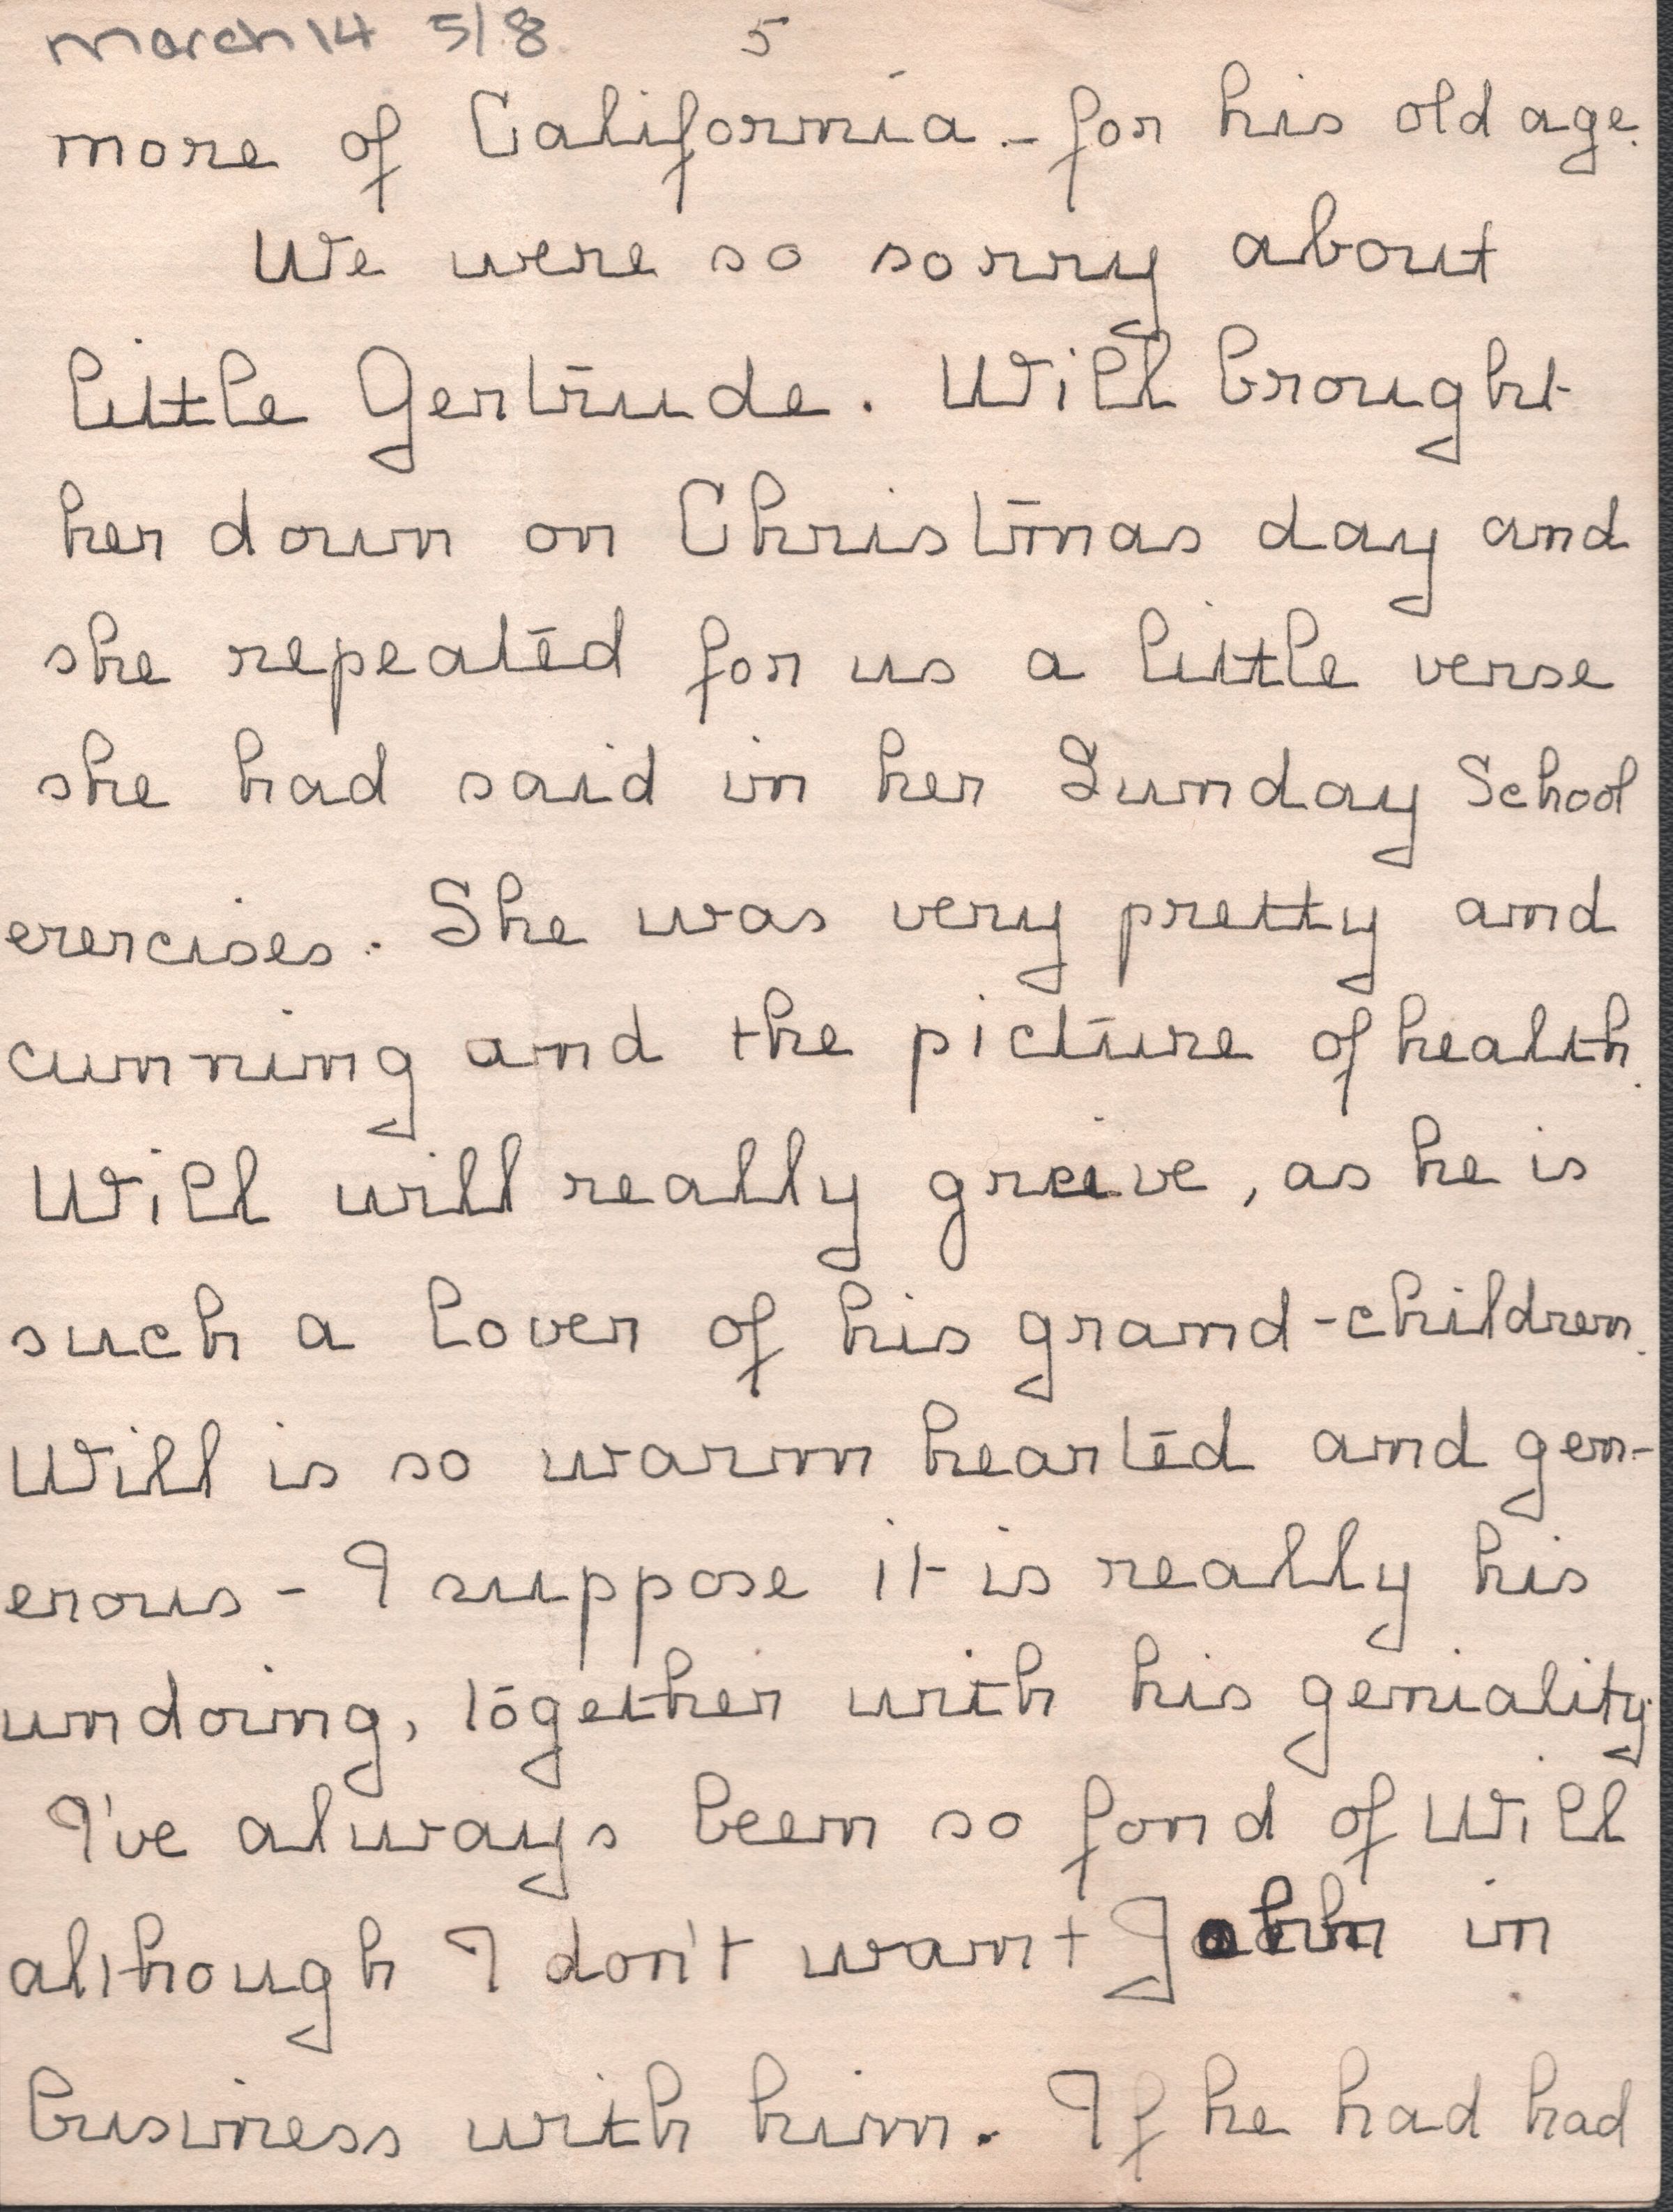 March 14 5/8 5
more of California - for his old age.
We were so sorry about
little Gertrude. Will brought
her down on Christmas day and
she repeated for us a little verse
she had said in her Sunday School
exercises. She was very pretty and
cunning and the picture of health.
Will will really greive, as he is
such a lover of his grand-children.
Will is so warm hearted and gen-
erous - I suppose it is really his
undoing, together with his geniality.
I've always been so fond of Will
although I don't want John in
business with him. If he had had